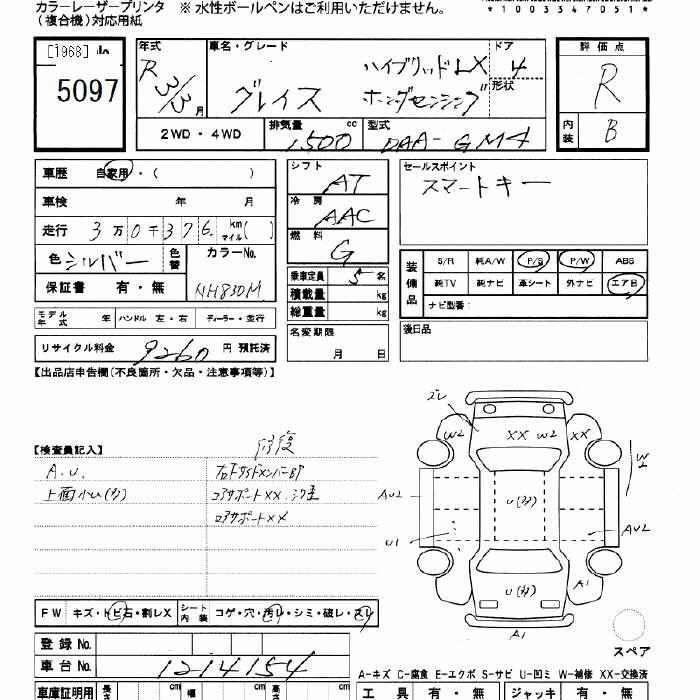 カラーレーザープリンタ ※ 水性ボールペンはご利用いただけません。
(複合機)対応用紙
*1003347051*
[1968]
5097
年式 R 3/3月
車名・グレード グレイス ハイブリッドLX ホンダセンシング
ドア 4
形状
評価点 R
内装 B
2WD・4WD
排気量 1500 cc
型式 DAA-GM4
車歴 自家用・( )
車検 年 月
走行 3万0千376 km マイル( )
色 シルバー 色替
カラーNo. NH830M
保証書 有・無
シフト AT
冷房 AAC
燃料 G
乗車定員 5 名
積載量 kg
総重量 kg
セールスポイント
スマートキー
装備品
S/R 純A/W P/S P/W ABS
純TV 純ナビ 革シート 外ナビ エアB
ナビ型番:
モデル年式 年 ハンドル 左・右 ディーラー・並行
名変期限 月 日
後日品
リサイクル料金 9260 円 預託済
【出品店申告欄(不良箇所・欠品・注意事項等)】
【検査員記入】
修復
A.U.
上面小U(多)
コアサポートXX
ロアサポートXX
XX W2
W2
XX
W2
AU2
U(多)
AU2
U1
U(多)
A1
A1
FW キズ・トビ石・割レX シート内装 コゲ・穴・汚レ・シミ・破レ・スレ
登録No.
車台No. 1214154
スペア
A-キズ C-腐食 E-エクボ S-サビ U-凹ミ W-補修 XX-交換済
車庫証明用 長さ cm 幅 cm 高さ cm
工具 有・無 ジャッキ 有・無